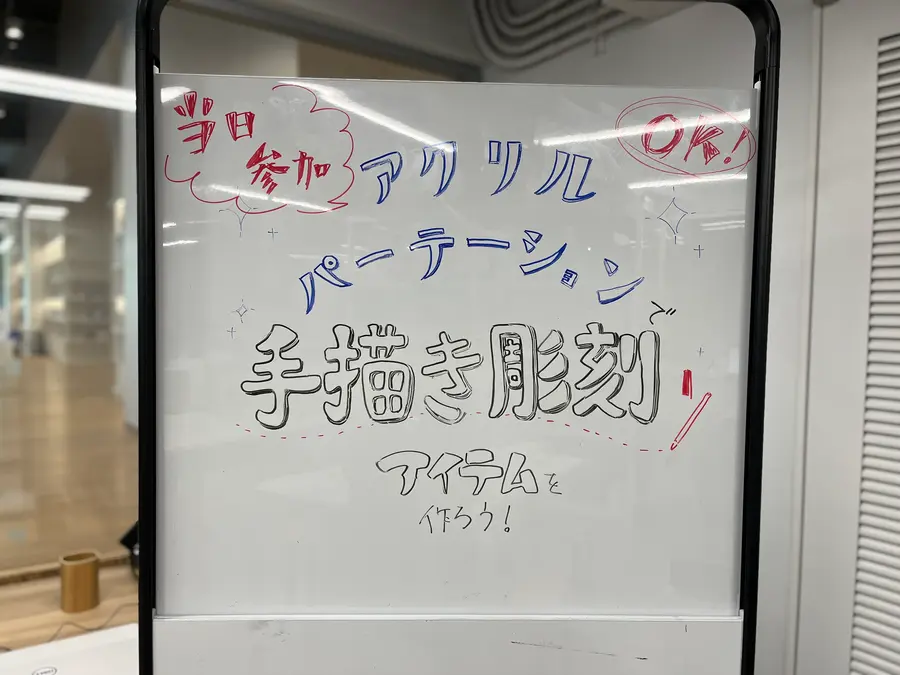 当日
参加
OK!
アクリル
パーテーションで
手描き彫刻
アイテムを
作ろう!